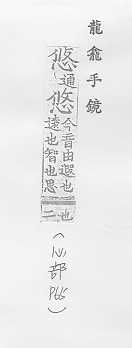 龍龕手鏡
通悠今音由遐也遠也智也思也二
(心部 P66)